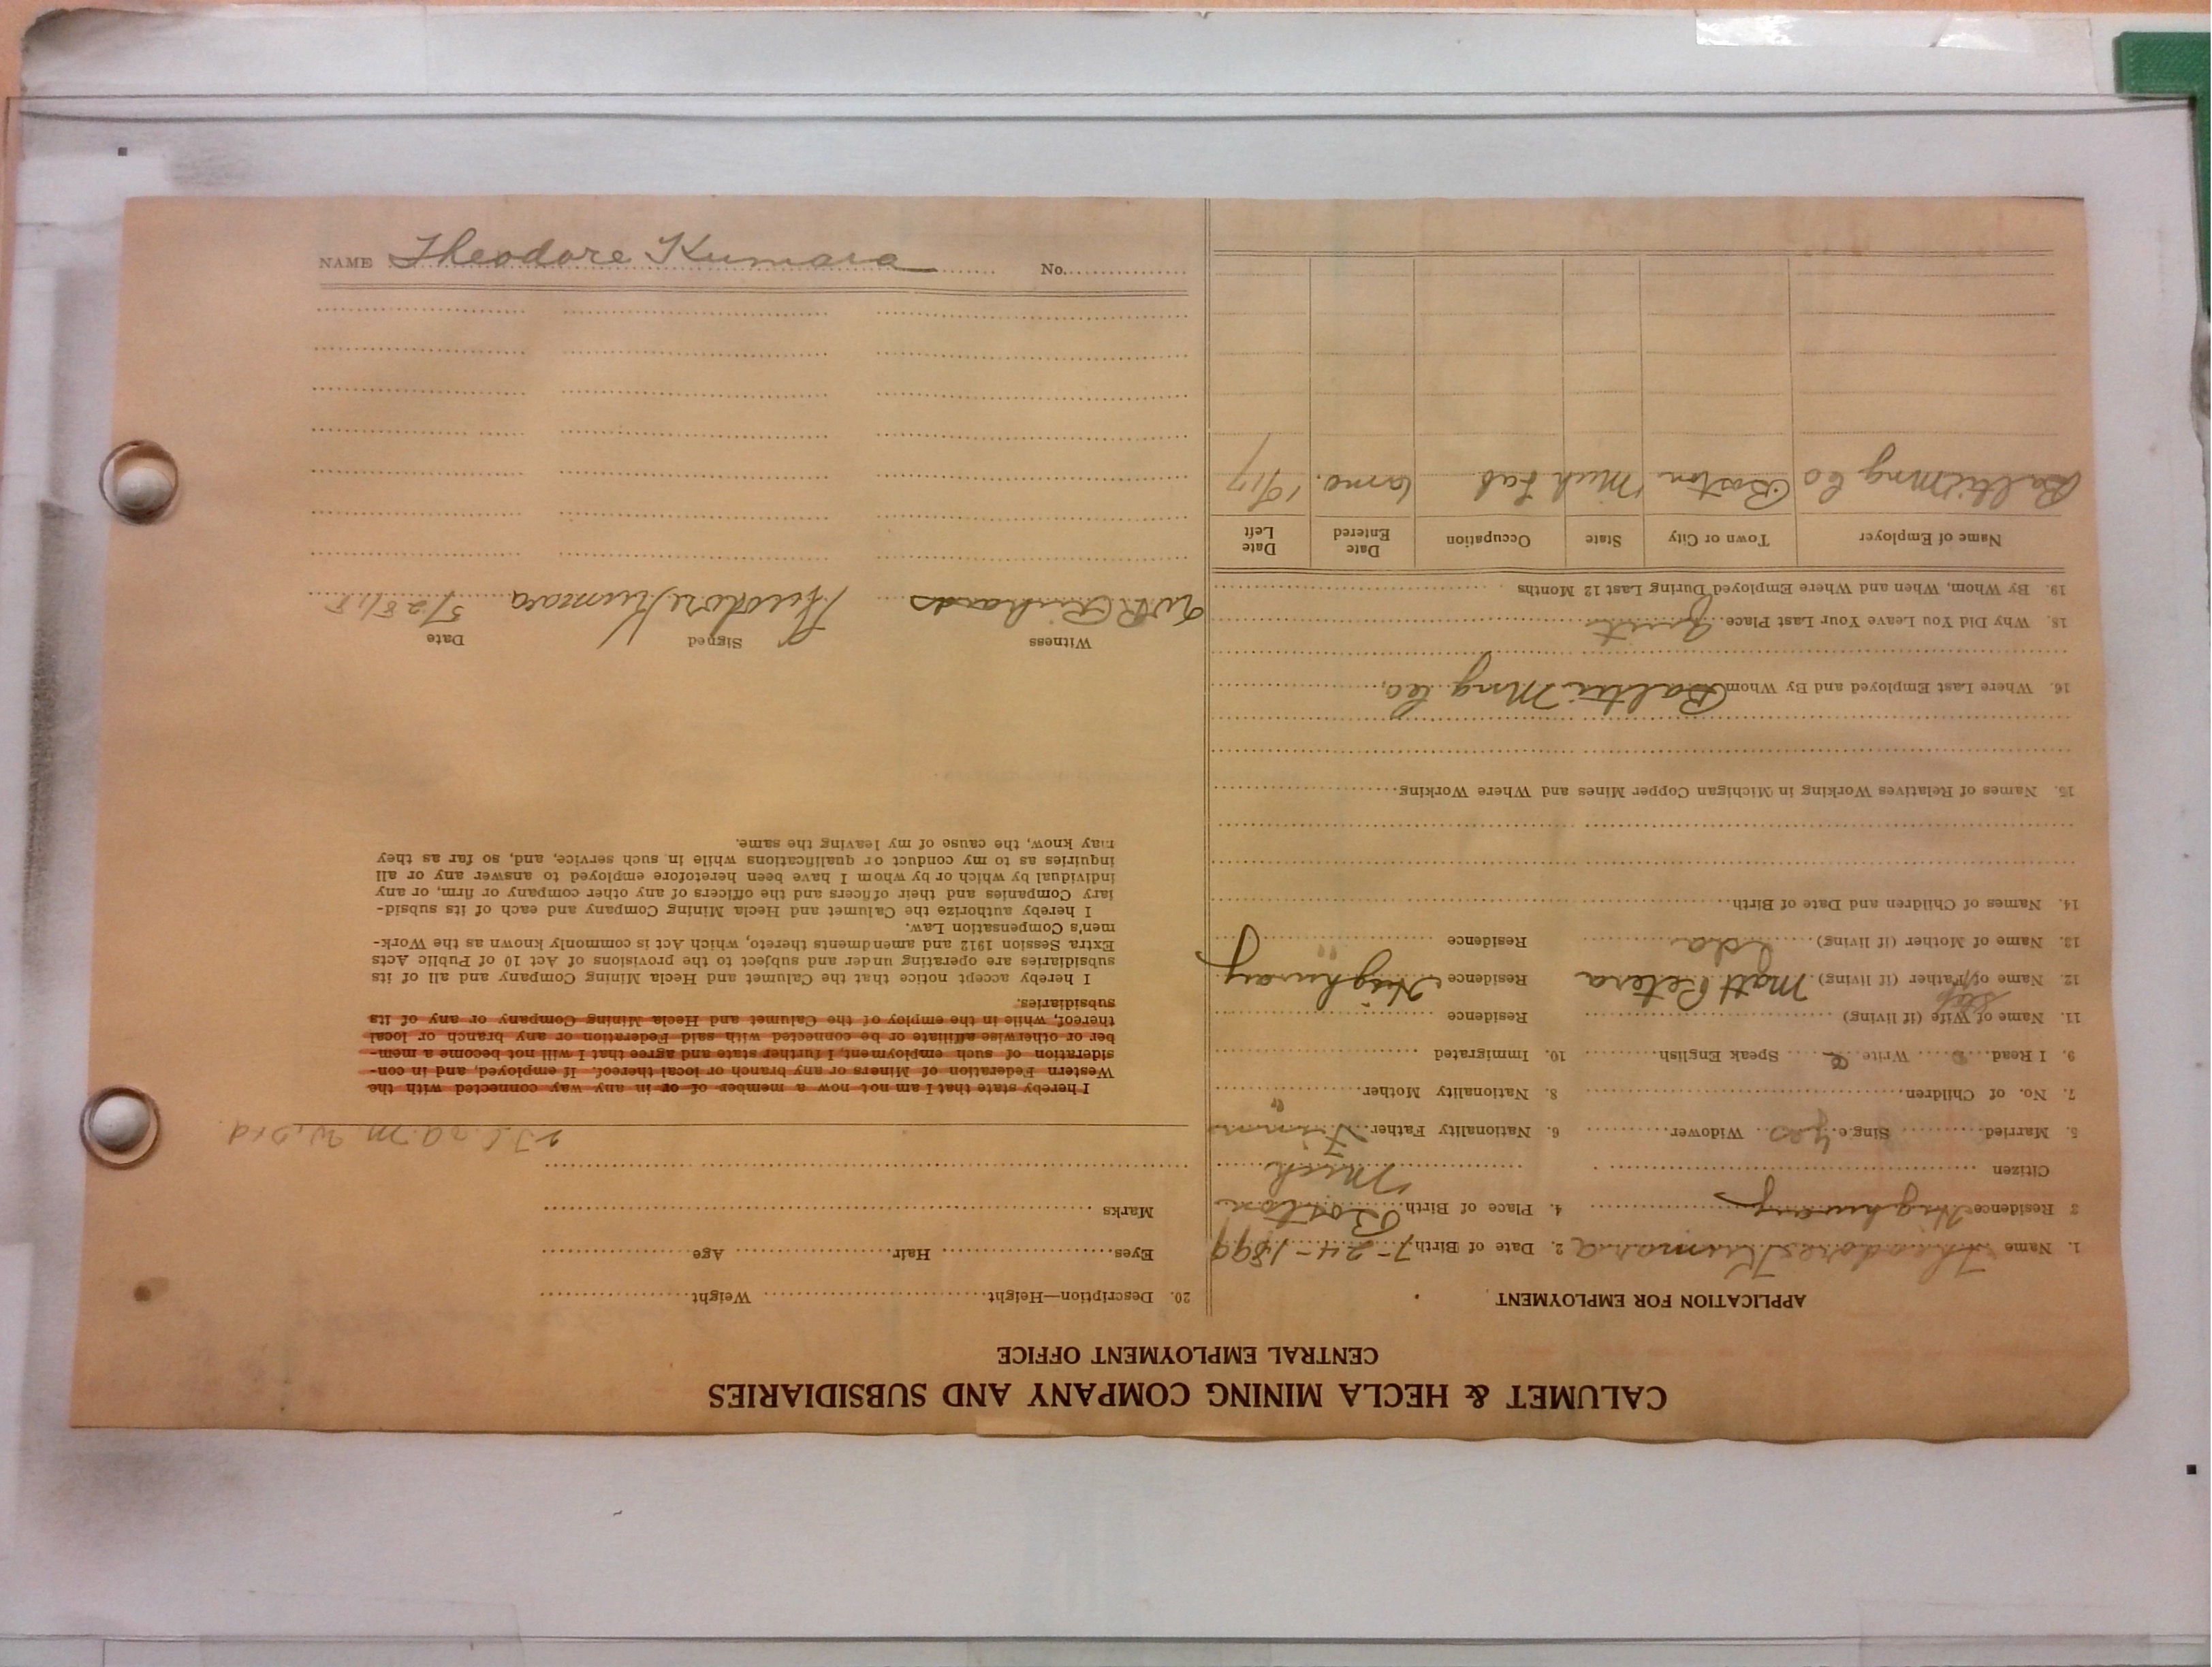 CALUMET & HECLA MINING COMPANY AND SUBSIDIARIES
CENTRAL EMPLOYMENT OFFICE
APPLICATION FOR EMPLOYMENT
1. Name Theodore Kumara 2. Date of Birth 7-24-1899
3 Residence Highway 4. Place of Birth Boston
Mich
Citizen
5. Married Single yes Widower 6. Nationality Father Finnis
7. No. of Children 8. Nationality Mother "
9. I Read Write Speak English 10. Immigrated
11. Name of Wife (if living) Residence
Step
12. Name of Father (if living) Matt Petera Residence Highway
13. Name of Mother (if living) Ida Residence " "
14. Names of Children and Date of Birth
15. Names of Relatives Working in Michigan Copper Mines and Where Working
16. Where Last Employed and By Whom Baltic Mng Co,
18. Why Did You Leave Your Last Place quit
19. By Whom, When and Where Employed During Last 12 Months
Name of Employer Town or City State Occupation Date Entered Date Left
Baltic Mng Co Boston Mich Lab 6 mo. 1917
20. Description—Height Weight
Eyes Hair Age
Marks
I hereby state that I am not now a member of or in any way connected with the
Western Federation of Miners or any branch or local thereof. If employed, and in con-
sideration of such employment, I further state and agree that I will not become a mem-
ber or otherwise affiliate or be connected with said Federation or any branch or local
thereof, while in the employ of the Calumet and Hecla Mining Company or any of its
subsidiaries.
I hereby accept notice that the Calumet and Hecla Mining Company and all of its
subsidiaries are operating under and subject to the provisions of Act 10 of Public Acts
Extra Session 1912 and amendments thereto, which Act is commonly known as the Work-
men's Compensation Law.
I hereby authorize the Calumet and Hecla Mining Company and each of its subsid-
iary Companies and their officers and the officers of any other company or firm, or any
individual by which or by whom I have been heretofore employed to answer any or all
inquiries as to my conduct or qualifications while in such service, and, so far as they
may know, the cause of my leaving the same.
Witness Signed Date
W R Richards Theodore Kumara 5/28/18
NAME Theodore Kumara No.